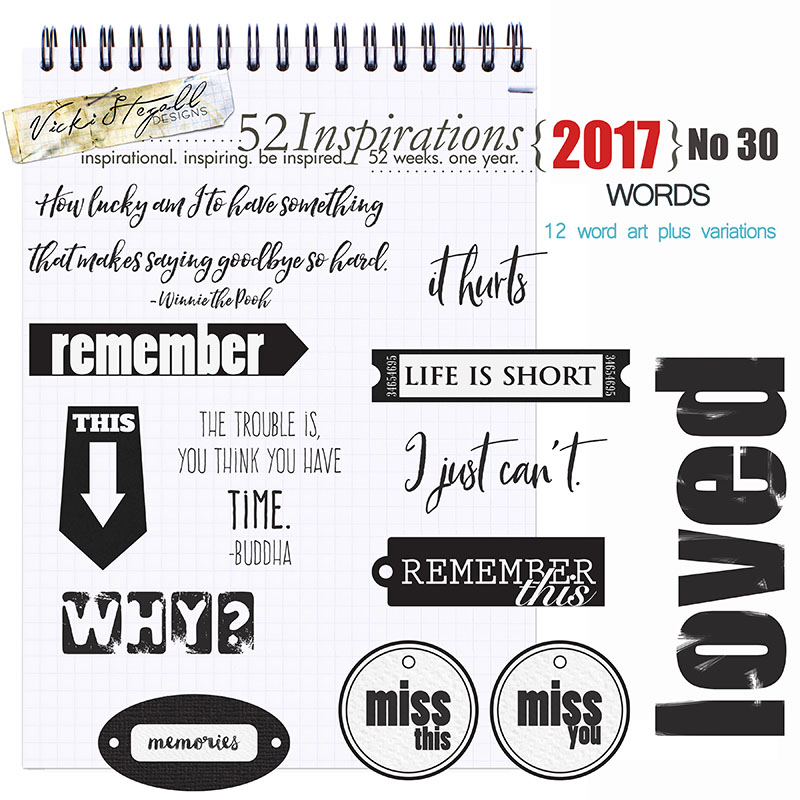 Vicki Stegall
DESIGNS
52 Inspirations
inspirational. inspiring. be inspired. 52 weeks. one year.
{2017} No 30
WORDS
12 word art plus variations
How lucky am I to have something
that makes saying goodbye so hard.
-Winnie the Pooh
it hurts
remember
34654695 LIFE IS SHORT 34654695
loved
THIS
THE TROUBLE IS,
YOU THINK YOU HAVE
TIME.
-BUDDHA
I just can't.
REMEMBER
this
WHY?
miss
this
miss
you
memories